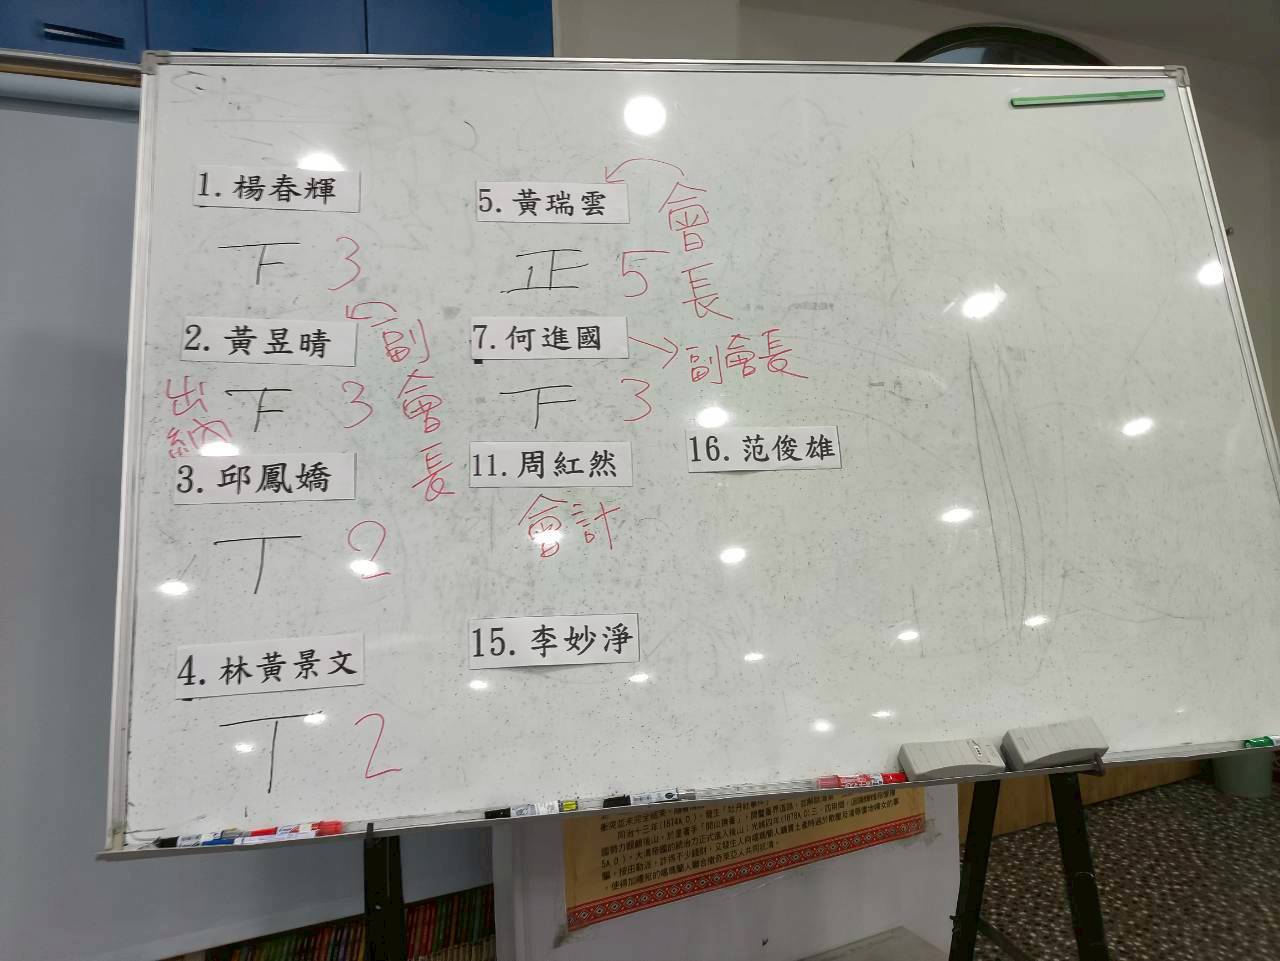 1. 楊春輝
下 3
2. 黃昱晴
下 3
副會長
出納
3. 邱鳳嬌
丅 2
4. 林黃景文
丅 2
5. 黃瑞雲
正 5
會長
7. 何進國
副會長
下 3
11. 周紅然
會計
15. 李妙淨
16. 范俊雄